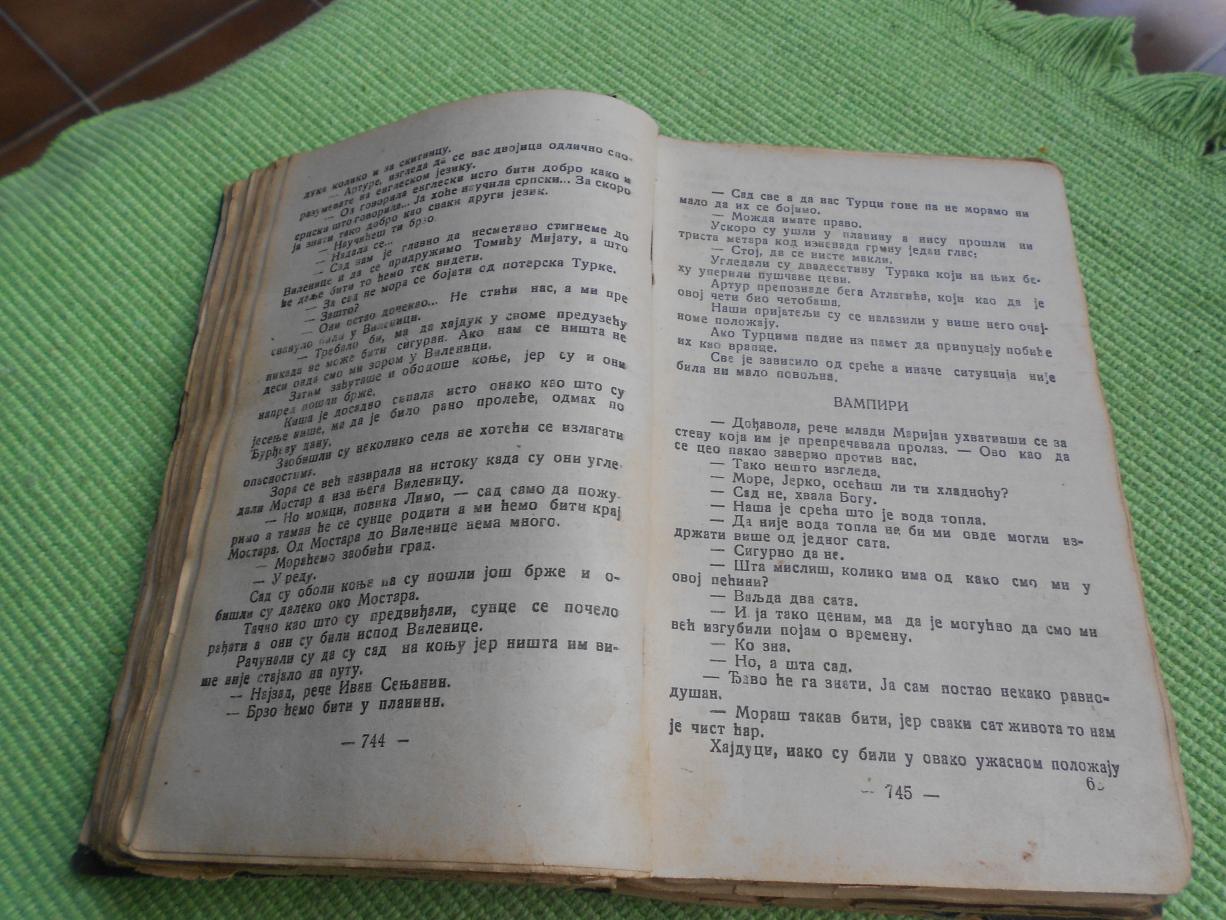 дука колико и за скитницу.
— Артуре, изгледа да се вас двојица одлично спо-
разумевате на енглеском језику.
— Он говорила енглески исто бити добро како и
српски што говорила... Ја хоће научила српски... За скоро
ја знати тако добро као сваки други језик.
— Научићеш ти брзо.
— Надала се...
— Сад нам је главно да несметано стигнемо до
Виленице и да се придружимо Томићу Мијату, а што
ће даље бити то ћемо тек видети.
— За сад не мора се бојати од потерска Турке.
— Зашто?
— Они остао дочекао... Не стићи нас, а ми пре
свануло били у Виленици.
— Требало би, ма да хајдук у своме предузећу
никада не може бити сигуран. Ако нам се ништа не
деси онда смо ми зором у Виленици.
Затим заћуташе и ободоше коње, јер су и они
напред пошли брже.
Киша је досадно сипала исто онако као што су
јесење кише, ма да је било рано пролеће, одмах по
Ђурђеву дану.
Заобишли су неколико села не хотећи се излагати
опасностима.
Зора се већ назирала на истоку када су они угле-
дали Мостар а иза њега Виленицу.
— Но момци, повика Лимо, — сад само да пожу-
римо а таман ће се сунце родити а ми ћемо бити крај
Мостара. Од Мостара до Виленице нема много.
— Мораћемо заобићи град.
— У реду.
Сад су оболи коње па су пошли још брже и о-
бишли су далеко око Мостара.
Тачно као што су предвиђали, сунце се почело
рађати а они су били испод Виленице.
Рачунали су да су сад на коњу јер ништа им ви-
ше није стајало на путу.
— Најзад, рече Иван Сењанин.
— Брзо ћемо бити у планини.
— 744 —
— Сад све а да вас Турци гоне па не морамо ни
мало да их се бојимо.
— Можда имате право.
Ускоро су ушли у планину а нису прошли ни
триста метара код изненада грмну један глас:
— Стој, да се нисте макли.
Угледали су двадесетину Турака који на њих бе-
ху уперили пушчане цеви.
Артур препознаде бега Атлагића, који као да је
овој чети био четобаша.
Наши пријатељи су се налазили у више него очај-
номе положају.
Ако Турцима падне на памет да припуцају побиће
их као врапце.
Све је зависило од среће а иначе ситуација није
била ни мало повољна.
ВАМПИРИ
— Дођавола, рече млади Маријан ухвативши се за
стену која им је препречавала пролаз. — Ово као да
се цео пакао заверио против нас.
— Тако нешто изгледа.
— Море, Јерко, осећаш ли ти хладноћу?
— Сад не, хвала Богу.
— Наша је срећа што је вода топла.
— Да није вода топла не би ми овде могли из-
држати више од једног сата.
— Сигурно да не.
— Шта мислиш, колико има од како смо ми у
овој пећини?
— Ваљда два сата.
— И ја тако ценим, ма да је могућно да смо ми
већ изгубили појам о времену.
— Ко зна.
— Но, а шта сад.
— Ђаво ће га знати. Ја сам постао некако равно-
душан.
— Мораш такав бити, јер сваки сат живота то нам
је чист ћар.
Хајдуци, иако су били у овако ужасном положају
— 745 —